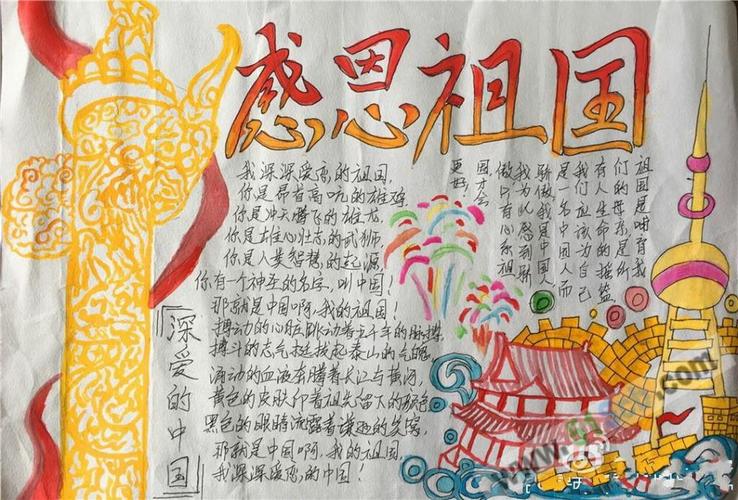 感恩祖国
我深深爱恋的祖国,
你是昂首高吭的雄鸡
你是冲天腾飞的雄龙,
你是雄心壮志的武狮,
你是人类智慧的起源,
你有一个神圣的名字,叫中国!
那就是中国啊,我的祖国!
搏动的心脏跳动着五千年的脉搏,
搏斗的志气挺拔起泰山的气魄,
涌动的血液奔腾着长江与黄河,
黄色的皮肤印着祖先留下的颜色
黑色的眼睛流露着谦逊的笑窝,
那就是中国啊,我的祖国,
我深深爱恋的中国!
深爱的中国
祖国是哺育我
们的母亲是所
有人生命的摇篮
我们应该为自己
是一名中国人而
骄傲,我是中国人
我为此感到骄
傲,只有心系祖
国才会
更好.